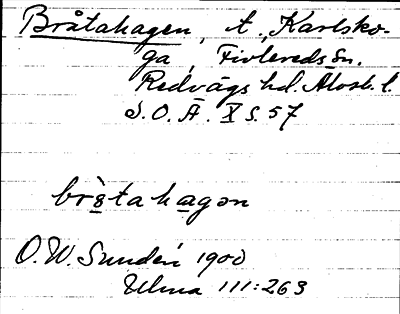 Bråtahagen, t., Karlsko-
ga, Fivlereds sn.
Redvägs hd. Älvsb. l.
S. O. Ä. X S. 57
brs̀tahagən
O. W. Sundén 1900
Ulma 111:263